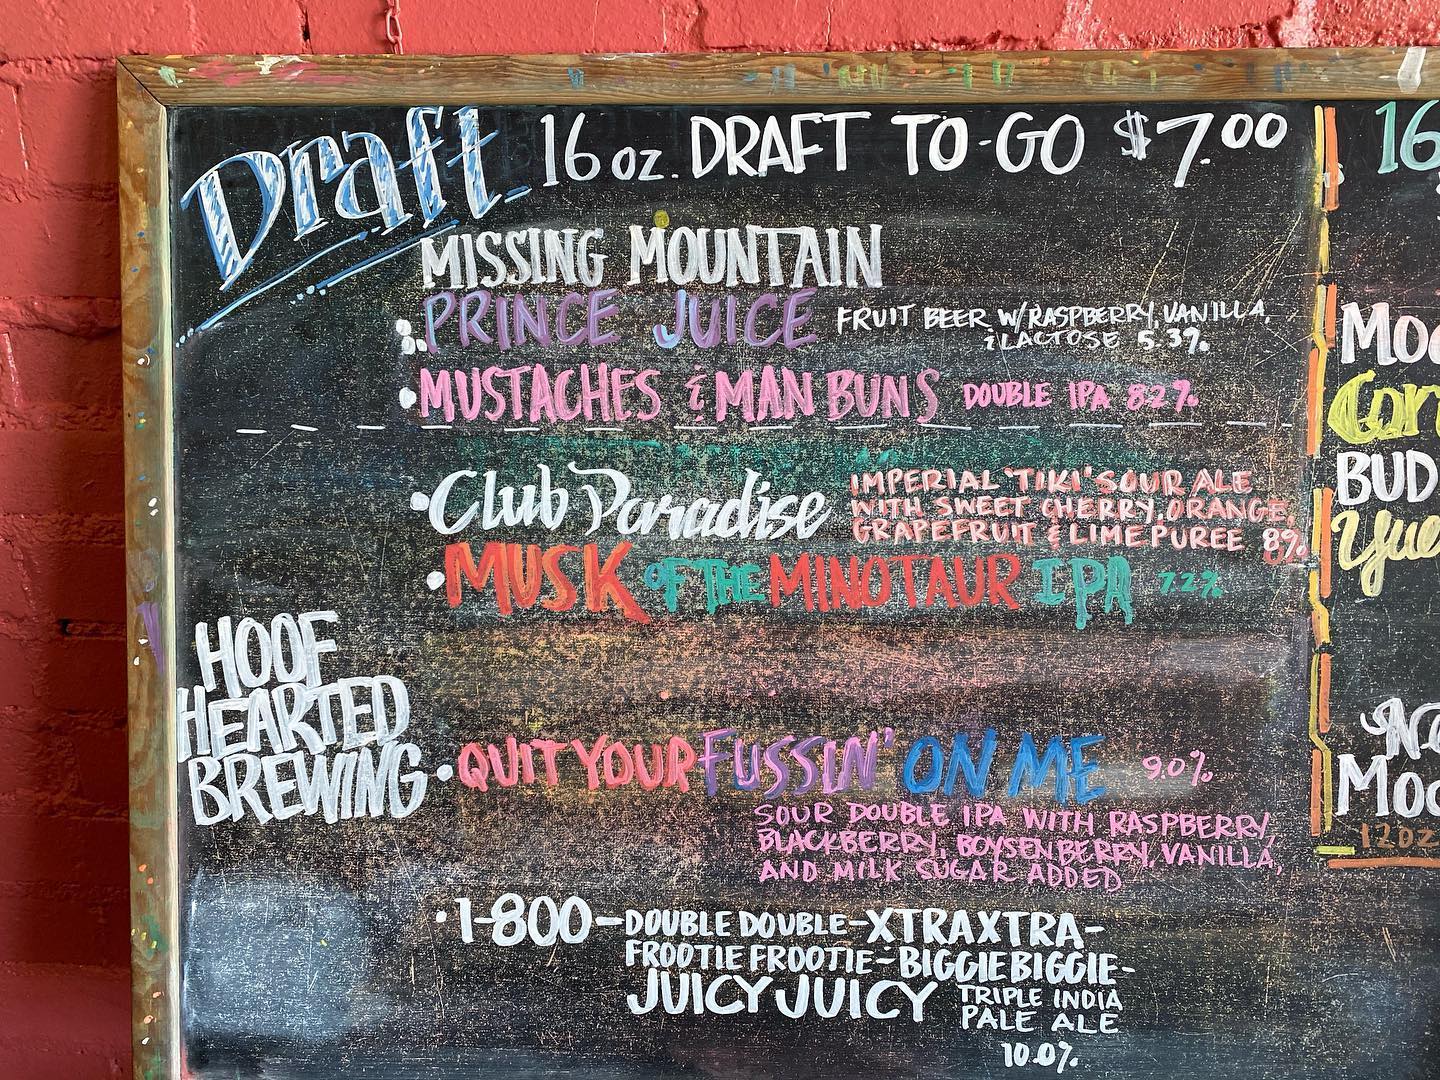 Draft 16 oz. DRAFT TO-GO $7.00
MISSING MOUNTAIN
PRINCE JUICE FRUIT BEER W/RASPBERRY, VANILLA,
& LACTOSE 5.3%
MUSTACHES & MAN BUNS DOUBLE IPA 8.2%
Club Paradise IMPERIAL 'TIKI' SOUR ALE
WITH SWEET CHERRY, ORANGE,
GRAPEFRUIT & LIME PUREE 8%
MUSK OF THE MINOTAUR IPA 7.2%
HOOF
HEARTED
BREWING
QUIT YOUR FUSSIN' ON ME 9.0%
SOUR DOUBLE IPA WITH RASPBERRY,
BLACKBERRY, BOYSENBERRY, VANILLA,
AND MILK SUGAR ADDED
1-800-DOUBLE DOUBLE-XTRAXTRA-
FROOTIE FROOTIE-BIGGIE BIGGIE-
JUICY JUICY TRIPLE INDIA
PALE ALE
10.0%
16
BUD
12oz